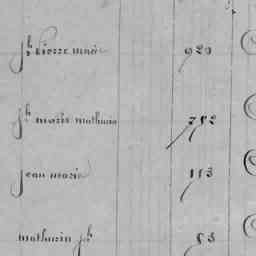 jh pierre marie 929
jh marie mathurin 782
jean marie 113
mathurin jh 83